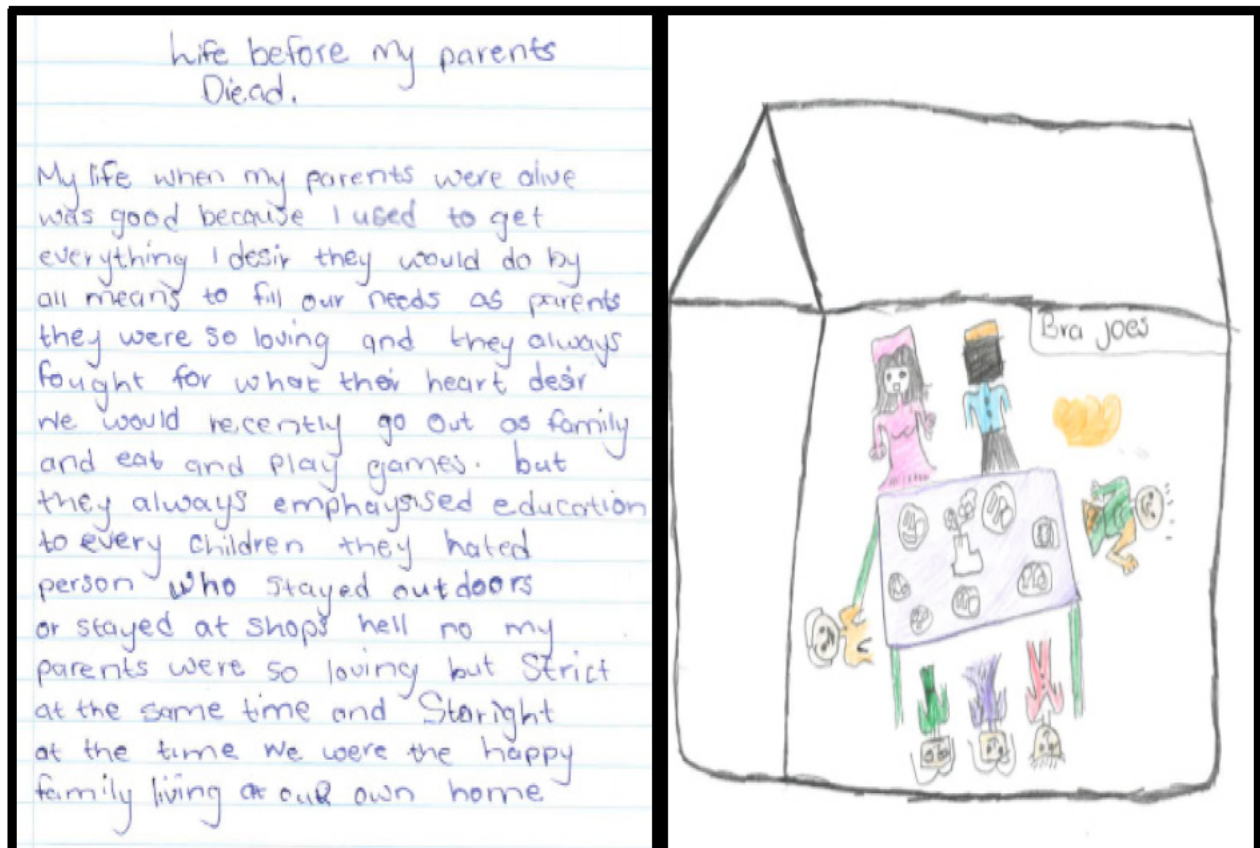 Life before my parents
Diead.
My life when my parents were alive
was good because I used to get
everything I desir they would do by
all means to fill our needs as parents
they were so loving and they always
fought for what their heart desir
We would recently go out as family
and eat and play games. but
they always emphaysised education
to every children they hated
person who stayed outdoors
or stayed at shops hell no my
parents were so loving but Strict
at the same time and Staright
at the time we were the happy
family living at our own home
Bra Joes